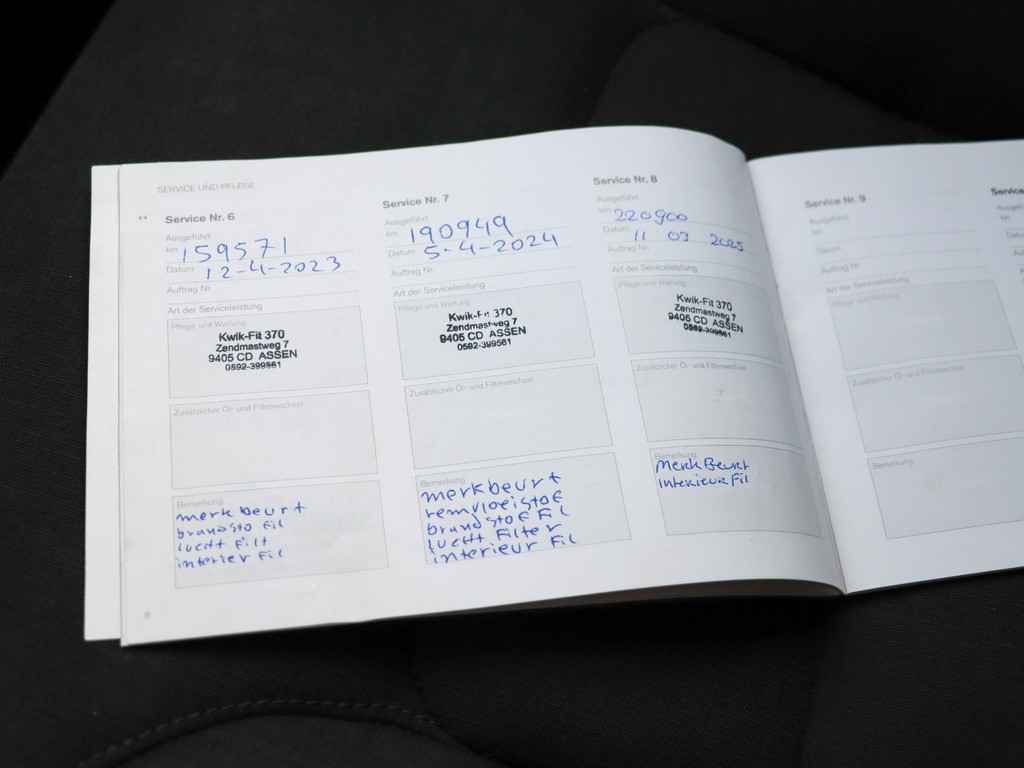 SERVICE UND PFLEGE
Service Nr. 6
Ausgeführt
km 159571
Datum 12-4-2023
Auftrag Nr.
Art der Serviceleistung
Pflege und Wartung
Kwik-Fit 370
Zendmastweg 7
9405 CD ASSEN
0592-399561
Zusätzlicher Öl- und Filterwechsel
Bemerkung
merkbeurt
brandsto fil
lucht filt
interier fil
Service Nr. 7
Ausgeführt
km 190949
Datum 5-4-2024
Auftrag Nr.
Art der Serviceleistung
Pflege und Wartung
Kwik-Fit 370
Zendmastweg 7
9405 CD ASSEN
0592-399561
Zusätzlicher Öl- und Filterwechsel
Bemerkung
merkbeurt
remvloeistof
brandstof fil
lucht filter
interieur fil
Service Nr. 8
Ausgeführt
km 220900
Datum 11 03 2025
Auftrag Nr.
Art der Serviceleistung
Pflege und Wartung
Kwik-Fit 370
Zendmastweg 7
9405 CD ASSEN
0592-399561
Zusätzlicher Öl- und Filterwechsel
Bemerkung
Merk Beurt
interieur Fil
Service Nr. 9
Ausgeführt
km
Datum
Auftrag Nr.
Art der Serviceleistung
Pflege und Wartung
Zusätzlicher Öl- und Filterwechsel
Bemerkung